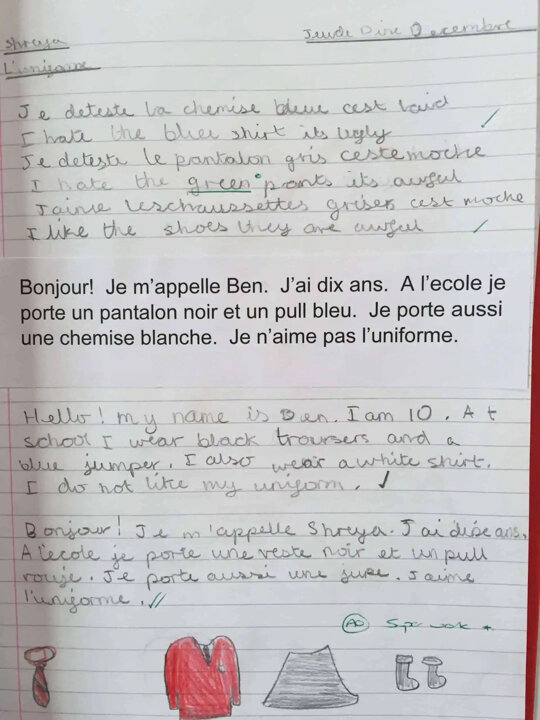 Shreya
Jeudi Dixe Decembre
L'unigorme
Je deteste la chemise bleue cest laid
I hate the blue shirt its ugly
Je deteste le pantalon gris ceste moche
I hate the green pants its awful
J'aime leschaussettes grises cest moche
I like the shoes they are awful
Bonjour! Je m'appelle Ben. J'ai dix ans. A l'ecole je
porte un pantalon noir et un pull bleu. Je porte aussi
une chemise blanche. Je n'aime pas l'uniforme.
Hello! my name is Ben. I am 10. At
school I wear black troursers and a
blue jumper. I also wear a white shirt.
I do not like my uniform.
Bonjour! Je m'appelle Shreya. J'ai dise ans.
A l'ecole je porte une veste noir et un pull
rouje. Je porte aussi une jupe. J'aime
l'uniforme.
work